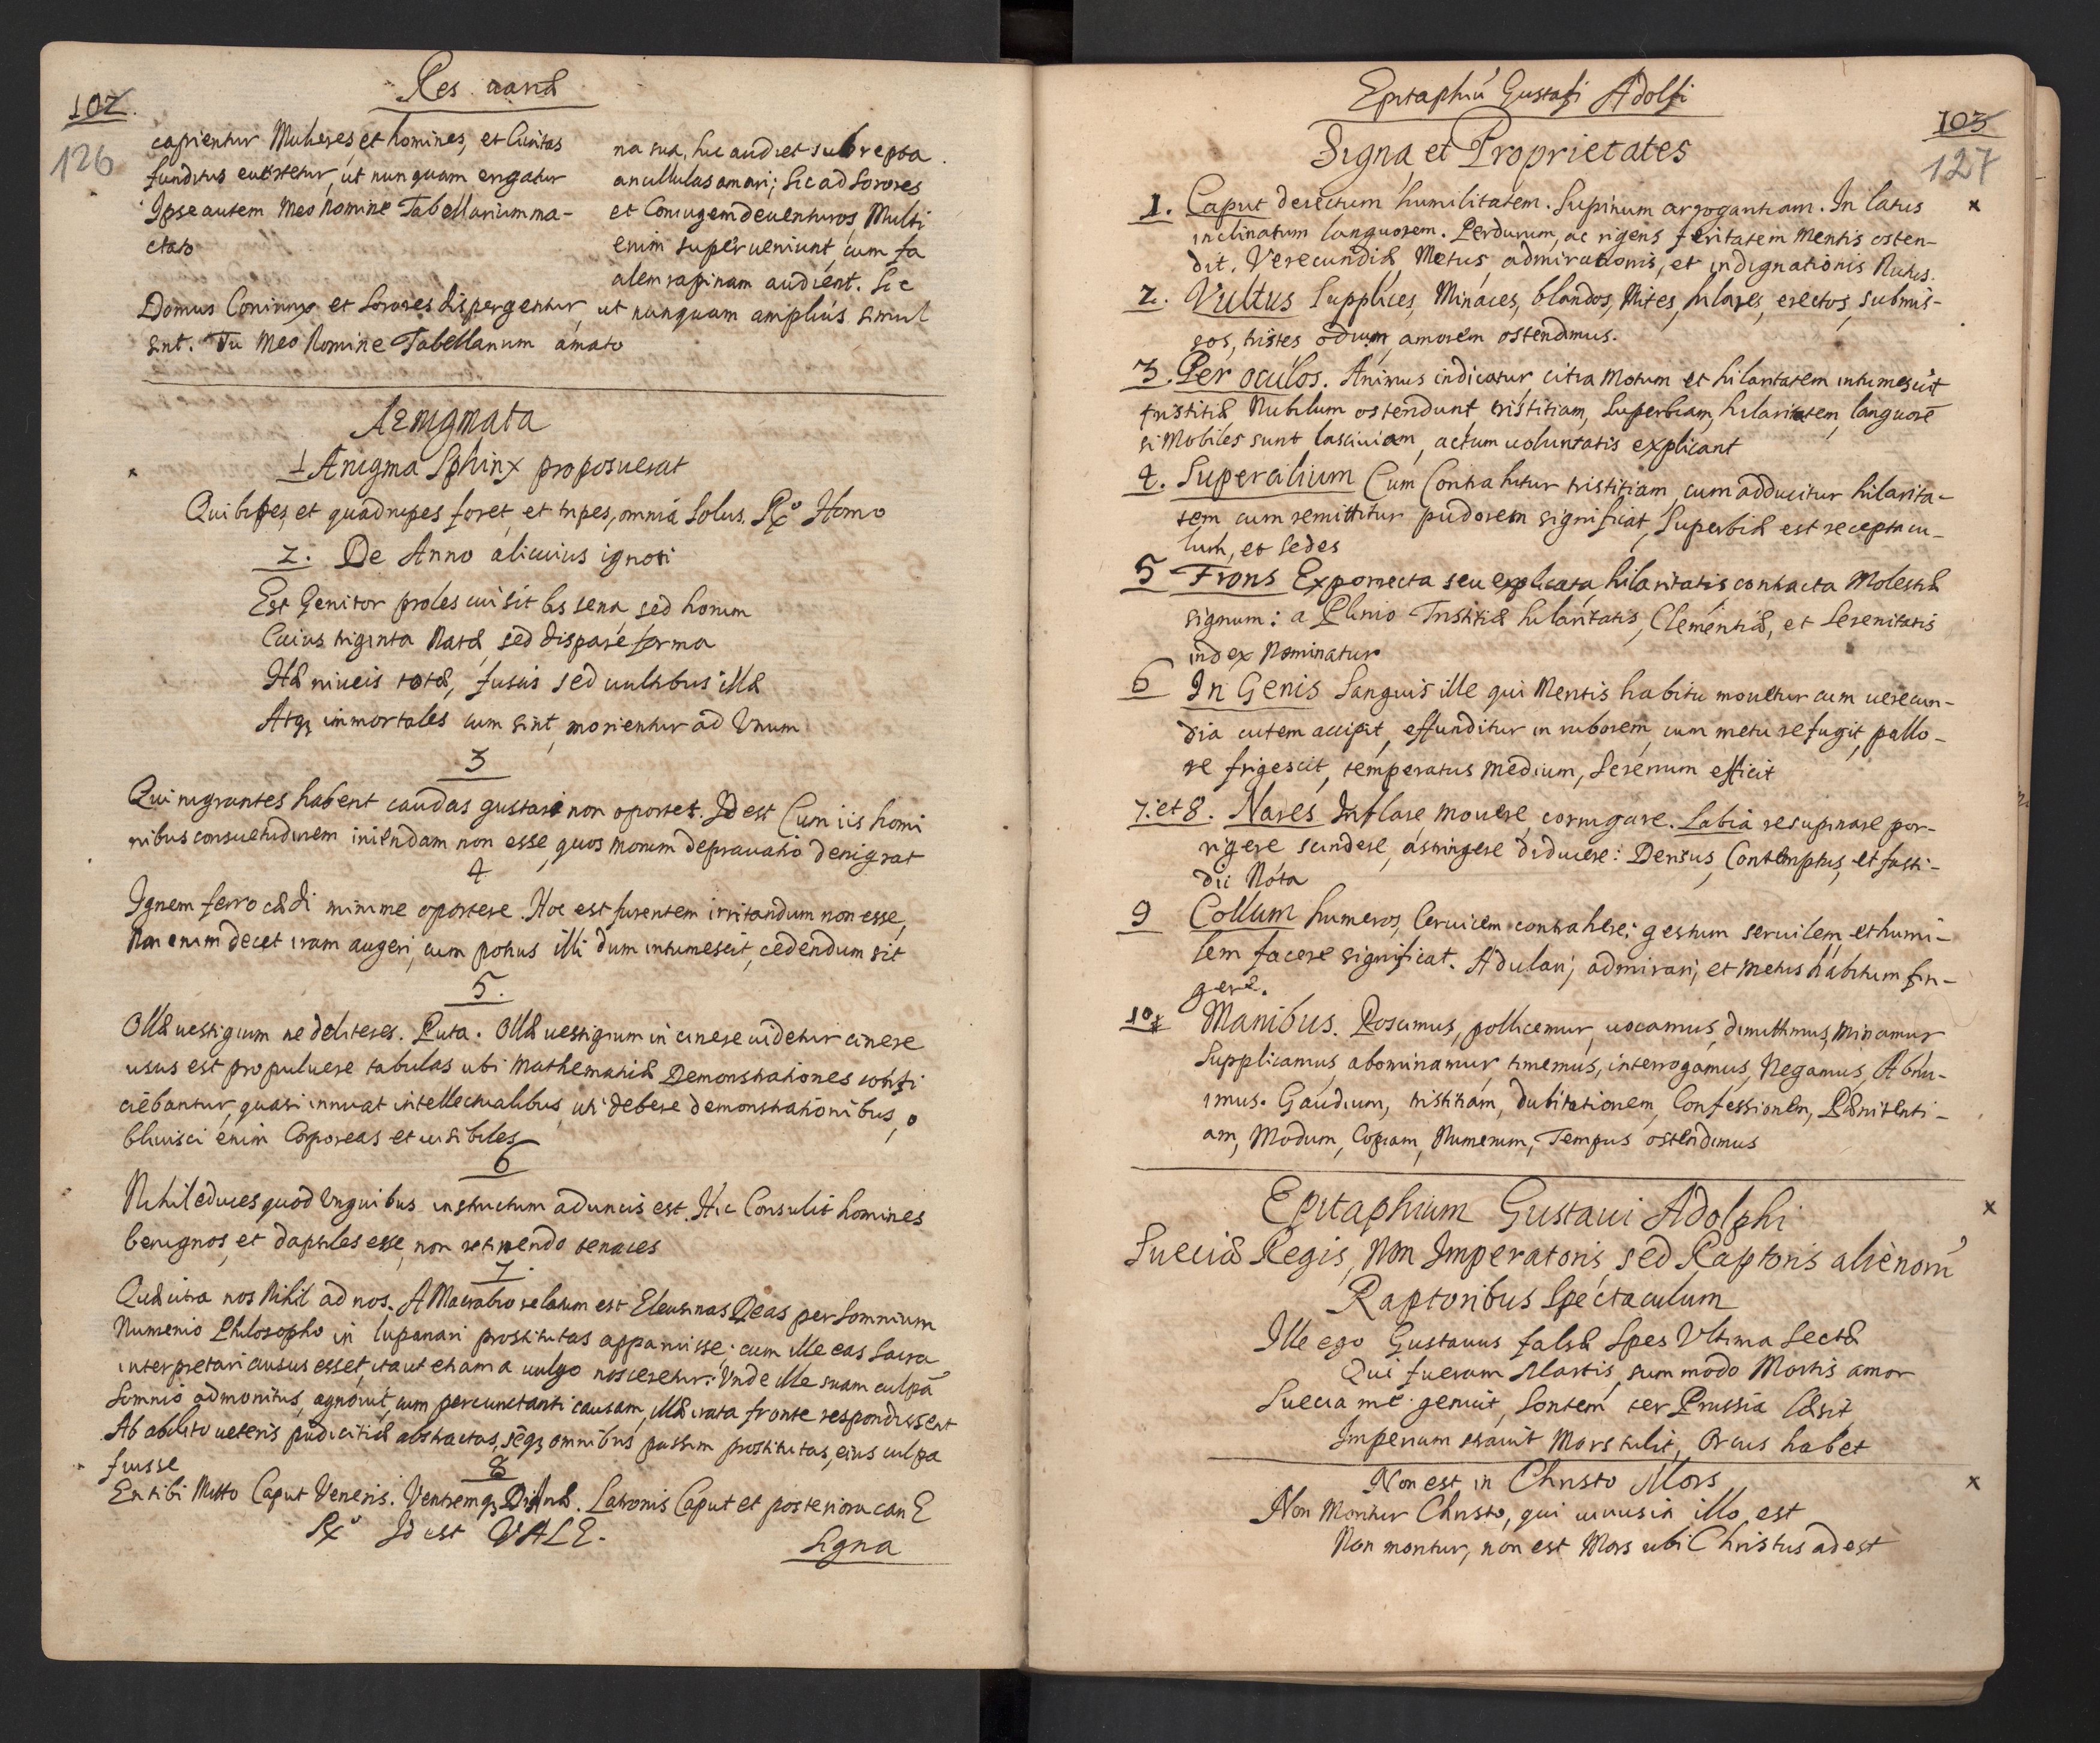 Res variæ
102.
126
capientur Mulieres, et homines, et Ciuitas
funditus euertetur, ut nunquam erigatur
Ipse autem meo Nomine Tabellarium ma-
ctato
na sua, hic audiet subrepta
ancillulas amari; Sic ad Sorores
et Coniugem deuenturos Multi
enim superueniunt, cum ta
alem rapinam audient. Sic
Domus Coniunx et Sorores dispergentur, ut nunquam amplius simul
sint. Tu Meo Nomine Tabellarium amato
Aenigmata
1 Ænigma Sphinx proposuerat
Qui bipes, et quadrupes foret, et tripes, omnia Solus. Rx° Homo
2. De Anno alicuius ignoti
Est Genitor proles cui sit bis sena, sed horum
Cuius triginta Natæ, sed dispare forma
Hæ niueis totæ, fuscis sed uultibus illæ
Atq3 immortales cum sint, morientur ad Unum
3
Qui nigrantes habent caudas gustari non oportet. Id est Cum iis homi
nibus consuetudinem iniendam non esse, quos morum deprauatio denigrat
4
Ignem ferro cædi minime oportere. Hoc est furentem irritandum non esse,
Non enim decet iram augeri, cum potius illi dum intumescit, cedendum sit
5.
Ollæ uestigium ne deliteres. Puta. Ollæ uestigium in cinere uidetur cinere
usus est pro puluere tabulas ubi Mathematicæ Demonstrationes confi
ciebantur, quasi innuat intellectualibus uti debere demonstrationibus, o
bliuisci enim Corporeas et uisibiles
6
Nihil educes quod Unguibus instructum aduncis est. Hic Consulit homines
benignos, et dapsiles esse, non retinendo tenaces
7.
Quæ citra nos Nihil ad nos. A Macrobio relatum est Eleusinas Deas per Somnium
Numenio Philosopho in lupanari prostitutas apparuisse; cum ille eas Sacra
interpretari ausus esset, ita ut etiam a uulgo nosceretur: Unde ille suam culpā
Somnio admonitus agnouit, cum percunctanti causam, illæ irata fronte respondissent
Ab abdito ueteris pudicitiæ abstractas, seq3 omnibus passim prostitutas, eius culpa
fuisse
8
En tibi Mitto Caput Veneris. Ventremq3 Dianæ. Latronis Caput et posteriora canE
Rx° Id est VALE.
Signa
Epitaphiū Gustafi Adolfi
103
127
Signa et Proprietates
1. Caput deiectum humilitatem. Supinum arrogantiam. In latus
inclinatum languorem. Perdurum, ac rigens feritatem Mentis osten-
dit. Verecundiæ, Metus, admirationis, et indignationis Nutus.
2. Vultus Supplices, Minaces, blandos, Mites, hilares, erectos, submis-
sos, tristes odium, amorem ostendimus.
3. Per oculos. Animus indicatur, citra Motum et hilaritatem intumescit
tristitiæ Nubilum ostendunt tristitiam, Superbiam, hilaritatem, languorē
si Mobiles sunt lasciuiam, actum uoluntatis explicant
4. Supercilium Cum Contrahitur tristitiam, cum adducitur hilarita-
tem cum remittitur pudorem significat, Superbiæ est receptacu-
lum, et Sedes
5 Frons Exporrecta seu explicata, hilaritatis contracta Molestiæ
signum: a Plinio Tristitiæ hilaritatis, Clementiæ, et Serenitatis
index Nominatur
6 In Genis Sanguis ille qui Mentis habitu mouetur cum uerecun-
dia cutem accipit, effunditur in ruborem, cum metu refugit, pallo-
re frigescit, temperatus Medium, Serenum efficit
7. et 8. Nares Inflare, mouere, corrugare. Labia resupinare por-
rigere scindere, astringere diducere: Derisus, Contemptus, et fasti-
dii Nota
9 Collum humeros, Ceruicem contrahere; gestum seruilem, et humi-
lem facere significat. Adulari, admirari, et metus habitum fin-
gere.
10 Manibus. Poscimus, pollicemur, uocamus, dimittimus, Minamur
Supplicamus, abominamur, timemus, interrogamus, Negamus, Abnu-
imus. Gaudium, tristitiam, dubitationem, Confessionem, Pænitenti-
am, Modum, Copiam, Numerum, Tempus ostendimus
Epitaphium Gustaui Adolphi
Sueciæ Regis, Non Imperatoris, sed Raptoris alienorū
Raptoribus Spectaculum
Ille ego Gustauus falsæ Spes Ultima Sectæ
Qui fueram Martis, sum modo Mortis amor
Suecia me genuit, Sontem ter Prussia læsit,
Imperium strauit Mors tulit, Orcus habet
Non est in Christo Mors
Non Moritur Christo, qui uiuus in illo est
Non moritur, non est Mors ubi Christus adest